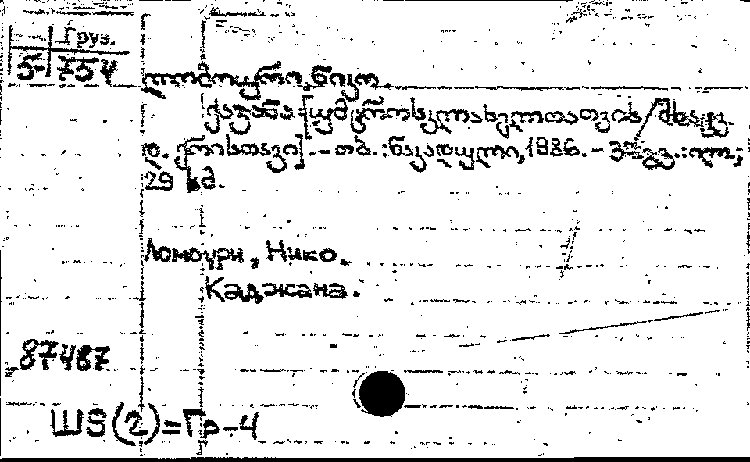 Груз.
5-754
ლომოური, ნიკო.
ქაჯანა: [უმცროსკლასელთათვის / მხატვ.
დ. ქრისთავი]. - თბ.: ნაკადული, 1986. - გვ.: ილ.;
29 სმ.
Ломоури, Нико.
Каджана.
87487
Ш5(2)=Гр-4